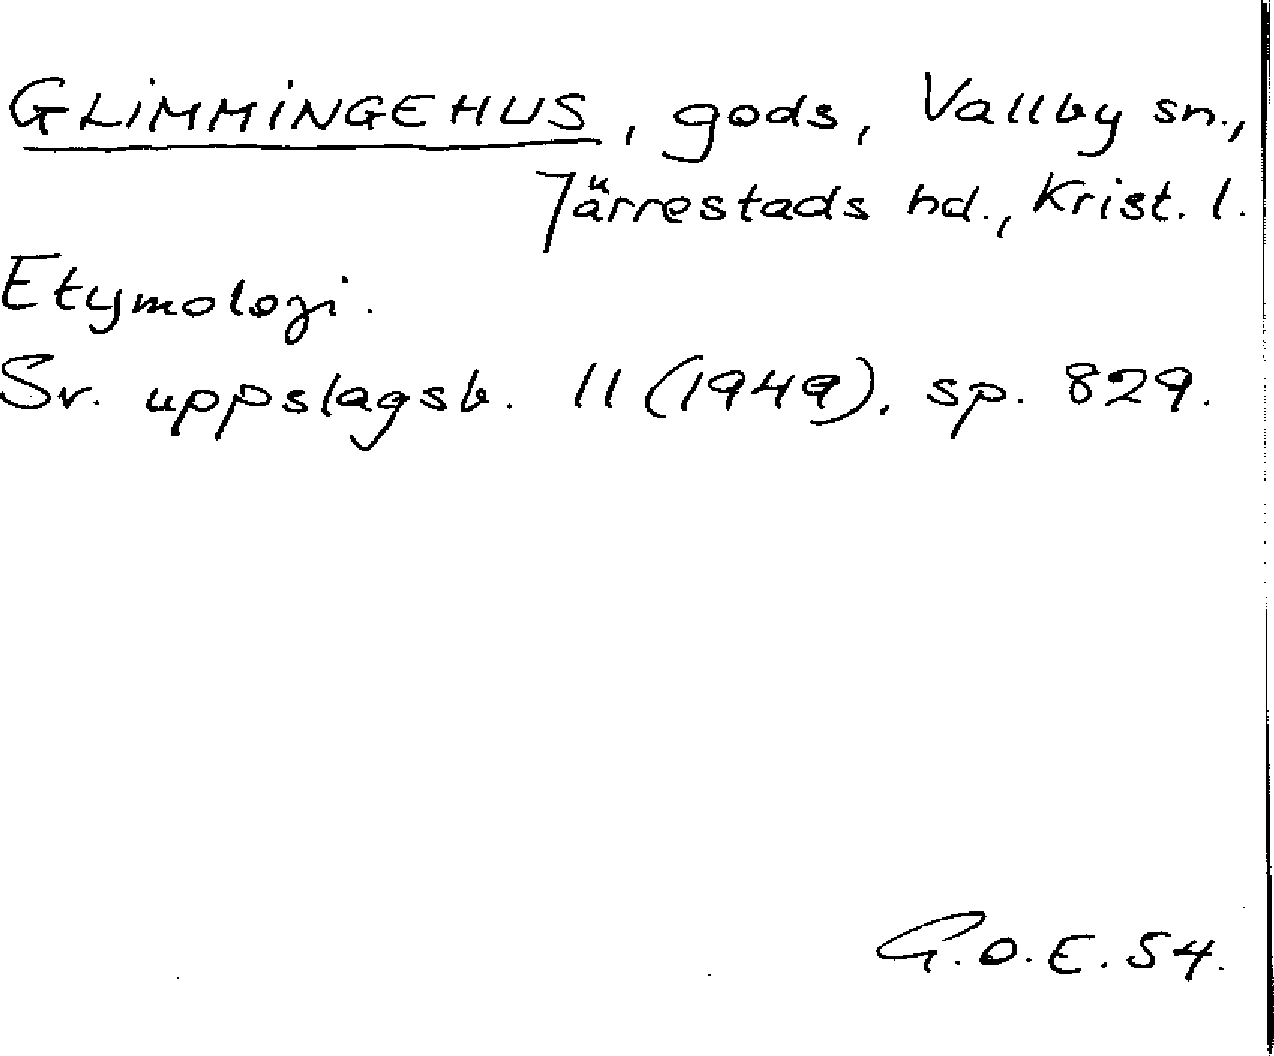 GLIMMINGEHUS, gods, Vallby sn.,
Järrestads hd., Krist. l.
Etymologi.
Sv. uppslagsb. 11 (1949). sp. 829.
G.O.E. 54.